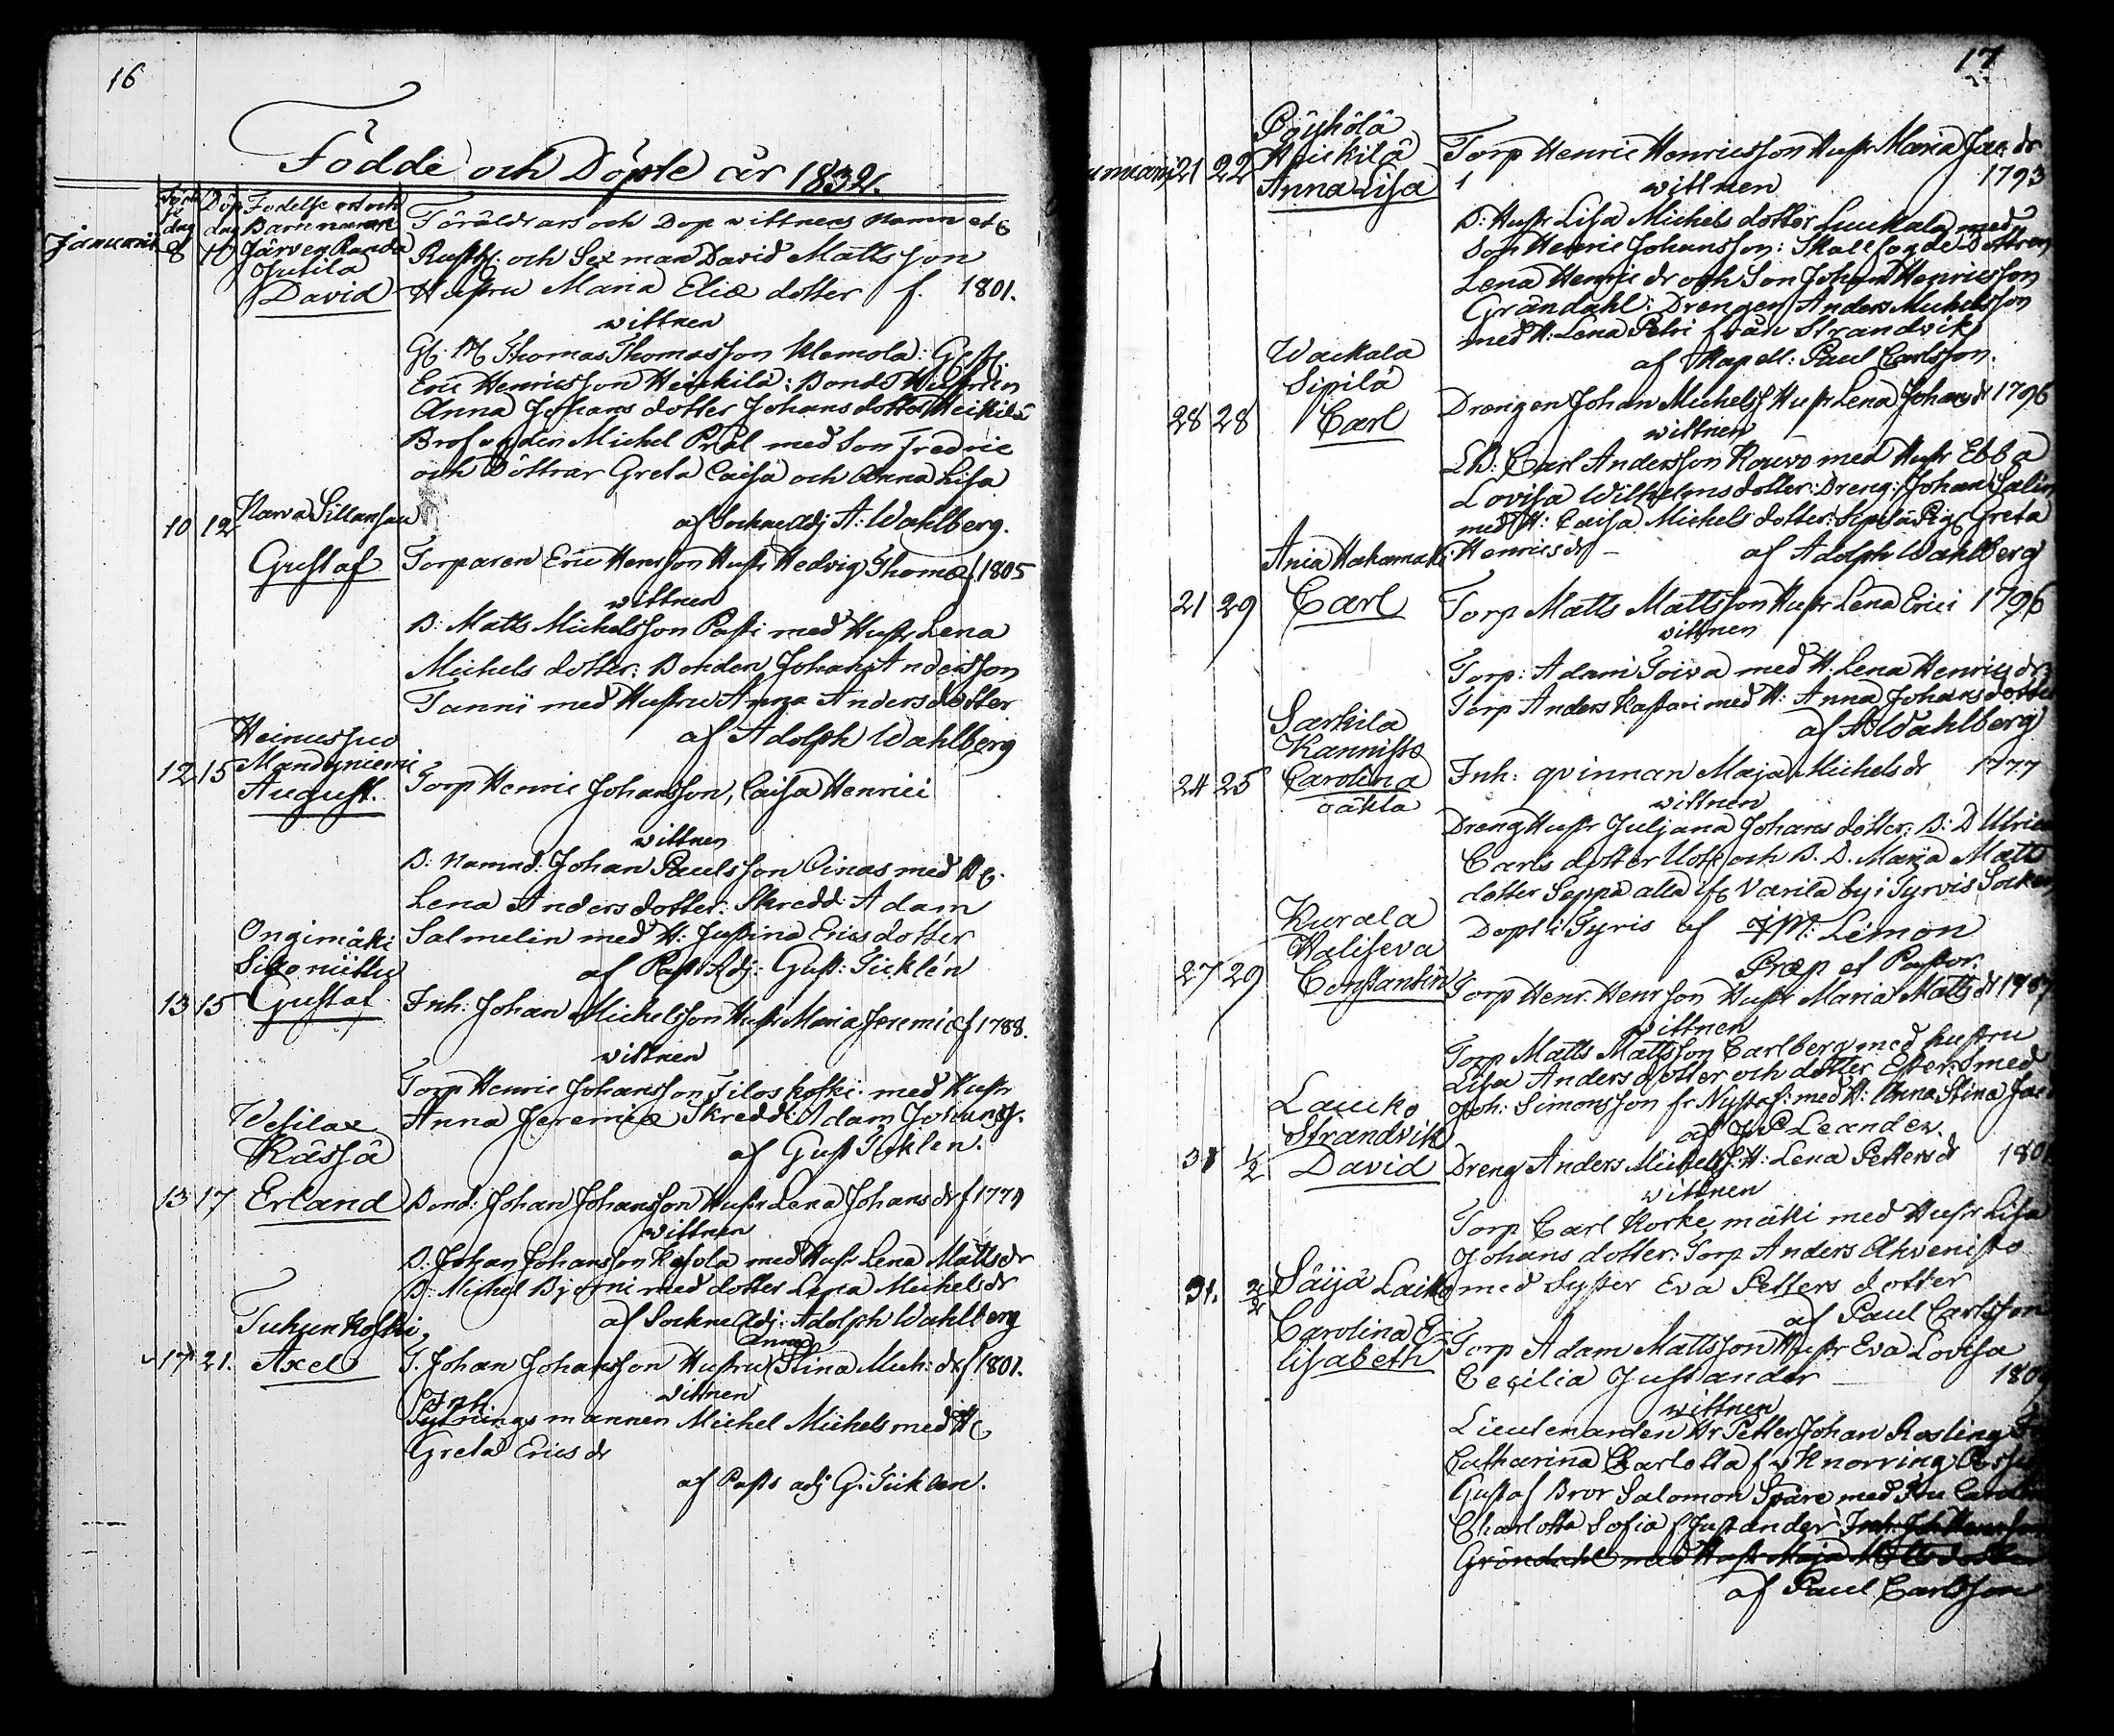 16
Födde och Döpte år 1832.
Januarii
Föd dag Döp dag Födelse ort och Barnenamn Föräldrars och Dop wittnens Namn etc
8 10 Järven Randa
Jutila
David
Rusth. och Sexman David Mattsson
Hustru Maria Eliæ dotter f. 1801.
wittnen
Thomas Thomasson Klemola:
Eric Henricsson Heickilä: Bonds Hustrun
Anna Johans dotter Johans dotter Heikkilä
Brofogden Michel Präl med Son Fredric
och Döttrar Greta Caisa och Anna Lisa
af Sockne Adj A: Wahlberg.
10 12 Narva Sillansuu
Gustaf
Torparen Eric Hensson Hustr Hedvig Thomæ f 1805
wittnen
B: Matts Michelsson Pasti med Hustr Lena
Michels dotter: Bonden Johan Andersson
Tanni med Hustru Anna Anders dotter
af Adolph Wahlberg
12 15 Heinusuo
Mandyniemi
August.
Torp Henric Johansson, Caisa Henrici
wittnen
B: Namnd: Johan Paulsson Oinas med H.
Lena Anders dotter: Skredd: Adam
Salmelin med H: Justina Erics dotter
af Past: Adj: Gust: Ticklén
13 15 Ongimäki
Sikoniittu
Gustaf
Inh: Johan Michelsson Hustr Maria Jeremiæ f 1788.
wittnen
Torp Henric Johansson Tiloskoski med Hustr
Anna Jeremiæ Skredd: Adam Johanss.
af Gust Ticklen.
13 17 Wesilax
Kässä
Erland
Bond: Johan Johansson Hustr Lena Johans dr f 1779
wittnen
B: Johan Johansson Kesola med Hustr Lena Matts dr
B: Michel Bjerni med dotter Lena Michels dr
af Sockne Adj: Adolph Wahlberg
17 21. Tuhunkoski
Axel
T. Johan Johansson Hustru Anna Stina Mich: dr f 1801.
wittnen
Inh.
Sytningsmannen Michel Michels med H
Greta Erics dr
af Pasts adj G. Ticklen.
17
Januarii 21 22 Pöyhölä
Heickilä
Anna Lisa
Torp Henric Henricsson Hustr Maria Jac dr
1793
wittnen
B: Hustr Lisa Michels dotter Luukala med
Son Henric Johansson: Skallfogde Döttren
Lena Henric dr och Son Johan Henricsson
Gröndahl: Drengen Anders Michelsson
med H: Lena Petri från Strandvik
af Kapell: Paul Carlsson.
28 28 Wackala
Sipilä
Carl
Drengen Johan Michelss Hustr Lena Johans dr 1796
wittnen
LB: Carl Andersson Kouvo med Hustr Ebba
Lovisa Wilhelms dotter: Dreng: Johan Salin
med H: Caisa Michels dotter: Sipilä Pig Greta
Henrics dr
af Adolph Wahlberg
21 29 Ania Hakamäki
Carl
Torp Matts Mattsson Hustr Lena Erici 1796
wittnen
Torp: Adam Toiva med H: Lena Henrics dr
Torp Anders Kastari med H: Anna Johans dotter
af A Wahlberg
24 25 Sarkila
Kannisto
Carolina
Inh: qvinnan Maja Michels dr 1777
oäkta
wittnen
Dreng Hustr Juljana Johans dotter: B: D Ulrica
Carls dotter Uoti och B. D. Maria Matts
dotter Seppä alla ifr Varila by i Tyrvis Socken
Döpt i Tyris af J.M: Limon
Præp et Pastor.
27 29 Kurala
Haliseva
Constantin
Torp Henr. Henrsson Hustr Maria Matts dr
wittnen
Torp Matts Mattsson Carlberg med hustru
Lisa Anders dotter och dotter Ester: Smed
Joh: Simonsson fr Nystaf: med H: Anna Stina Jac
af J P Leander.
31 1/2 Laucko
Strandvik
David
Dreng Anders Michelss H: Lena Petters dr 180
wittnen
Torp Carl Korkemäki med Hustr Lisa
Johans dotter: Torp Anders Ahvenisto
med Syster Eva Petters dotter
af Paul Carlsson
31. 2/2 Säijä Laiko
Carolina E-
lisabeth
Torp Adam Mattsson Hustr Eva Lovisa
Cecilia Justander 180
wittnen
Lieutenanten Hr Petter Johan Rosling
Catharina Charlotta f v Knorring
Gustaf Bror Salomon Spåre med Fru Carolina
Charlotta Sofia f Justander: Inh: Joh Hansson
Gröndahl med Hustr Maja Matts dotter
af Paul Carlsson